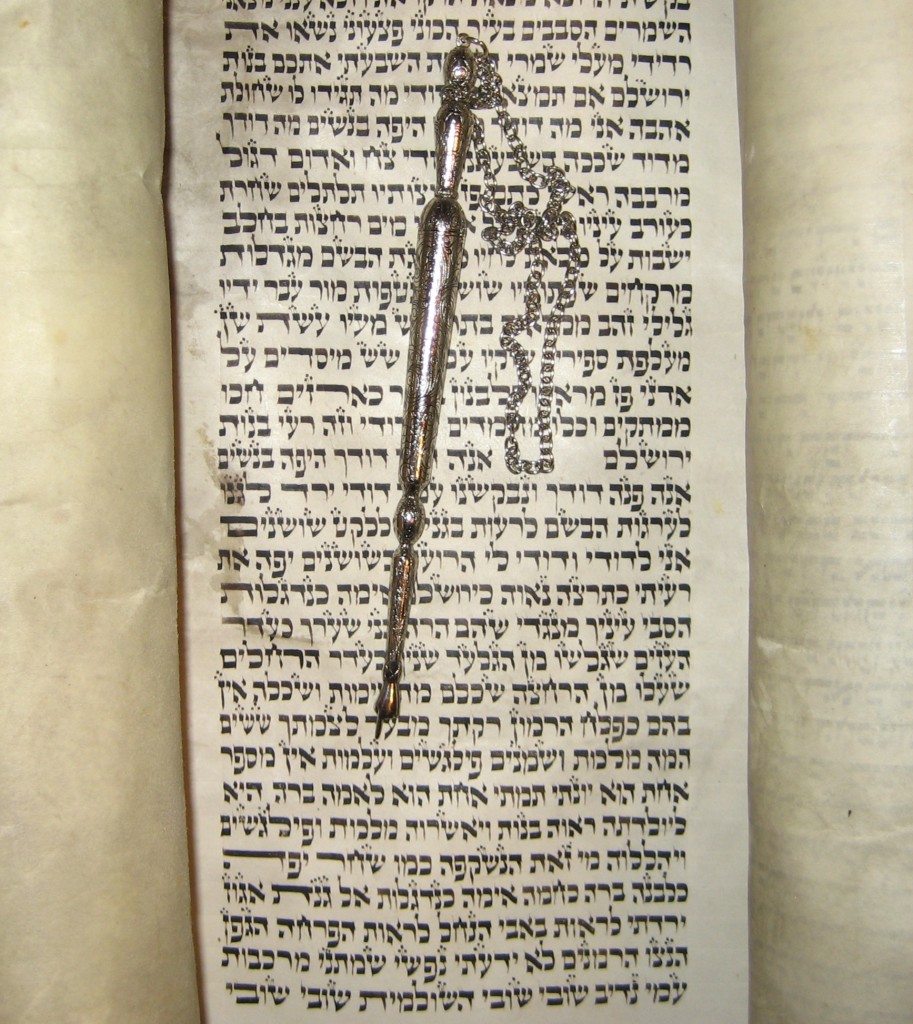 השמרים הסבבים בעיר הכוני פצעוני נשאו את
רדידי מעלי שמרי השבעתי אתכם בנות
ירושלם אם תמצאו דודי מה תגידו לו שחולת
אהבה אני מה דודך היפה בנשים מה דודך
מדוד שככה צח ואדום דגול
מרבבה ראשו כתם קוצותיו תלתלים שחרות
כעורב עיניו מים רחצות בחלב
ישבות על הבשם מגדלות
מרקחים שפתותיו נטפות מור עבר ידיו
גלילי זהב ממלאים בתרשיש מעיו עשת שן
מעלפת ספירים שוקיו עמודי שש מיסדים על
אדני פז מראהו כלבנון בחור כארזים חכו
ממתקים וכלו מחמדים זה דודי וזה רעי בנות
ירושלם אנה הלך דודך היפה בנשים
אנה פנה דודך ונבקשנו עמך דודי ירד לגנו
לערגות הבשם לרעות בגנים וללקט שושנים
אני לדודי ודודי לי הרועה בשושנים יפה את
רעיתי כתרצה נאוה כירושלם אימה כנדגלות
הסבי עיניך מנגדי שהם הרהיבני שערך כעדר
העזים שגלשו מן הגלעד שניך כעדר הרחלים
שעלו מן הרחצה שכלם מתאימות ושכלה אין
בהם כפלח הרמון רקתך מבעד לצמתך ששים
המה מלכות ושמנים פילגשים ועלמות אין מספר
אחת היא יונתי תמתי אחת היא לאמה ברה היא
ליולדתה ראוה בנות ויאשרוה מלכות ופילגשים
ויהללוה מי זאת הנשקפה כמו שחר יפה
כלבנה ברה כחמה אימה כנדגלות אל גנת אגוז
ירדתי לראות באבי הנחל לראות הפרחה הגפן
הנצו הרמנים לא ידעתי נפשי שמתני מרכבות
עמי נדיב שובי שובי השולמית שובי שובי